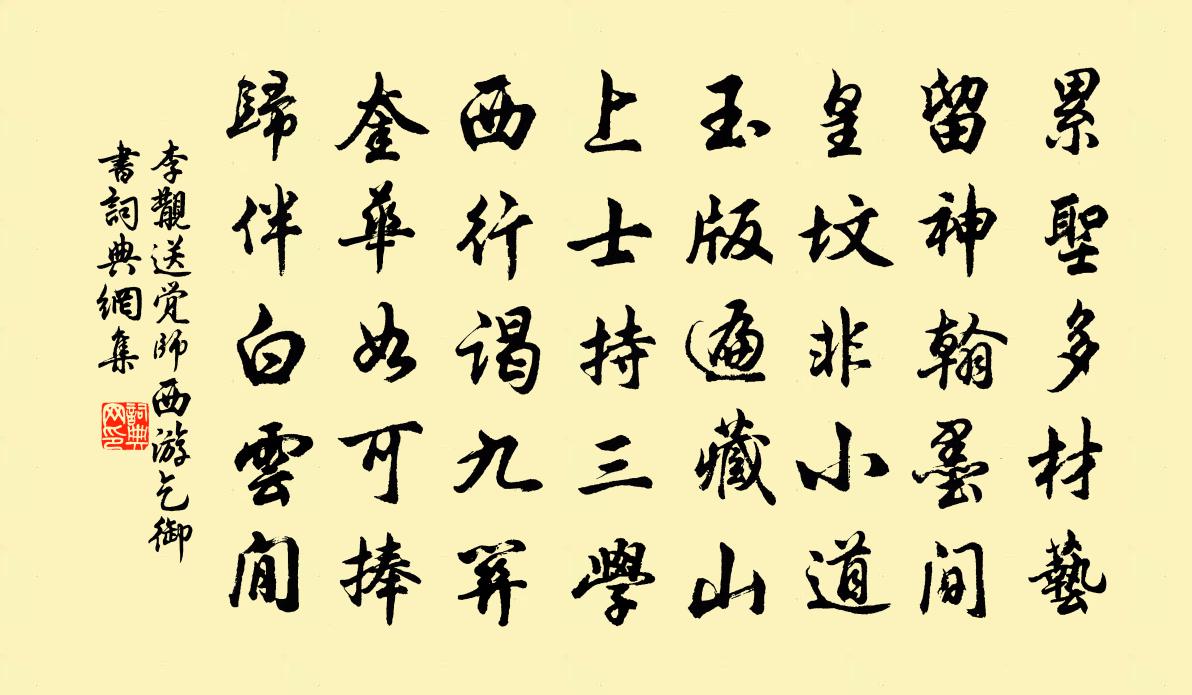 累聖多材藝
留神翰墨間
皇墳非小道
玉版遍藏山
上士持三學
西行謁九關
奎華如可捧
歸伴白雲間
李覯送觉師西游乞御
書詞典網集
詞典
网印